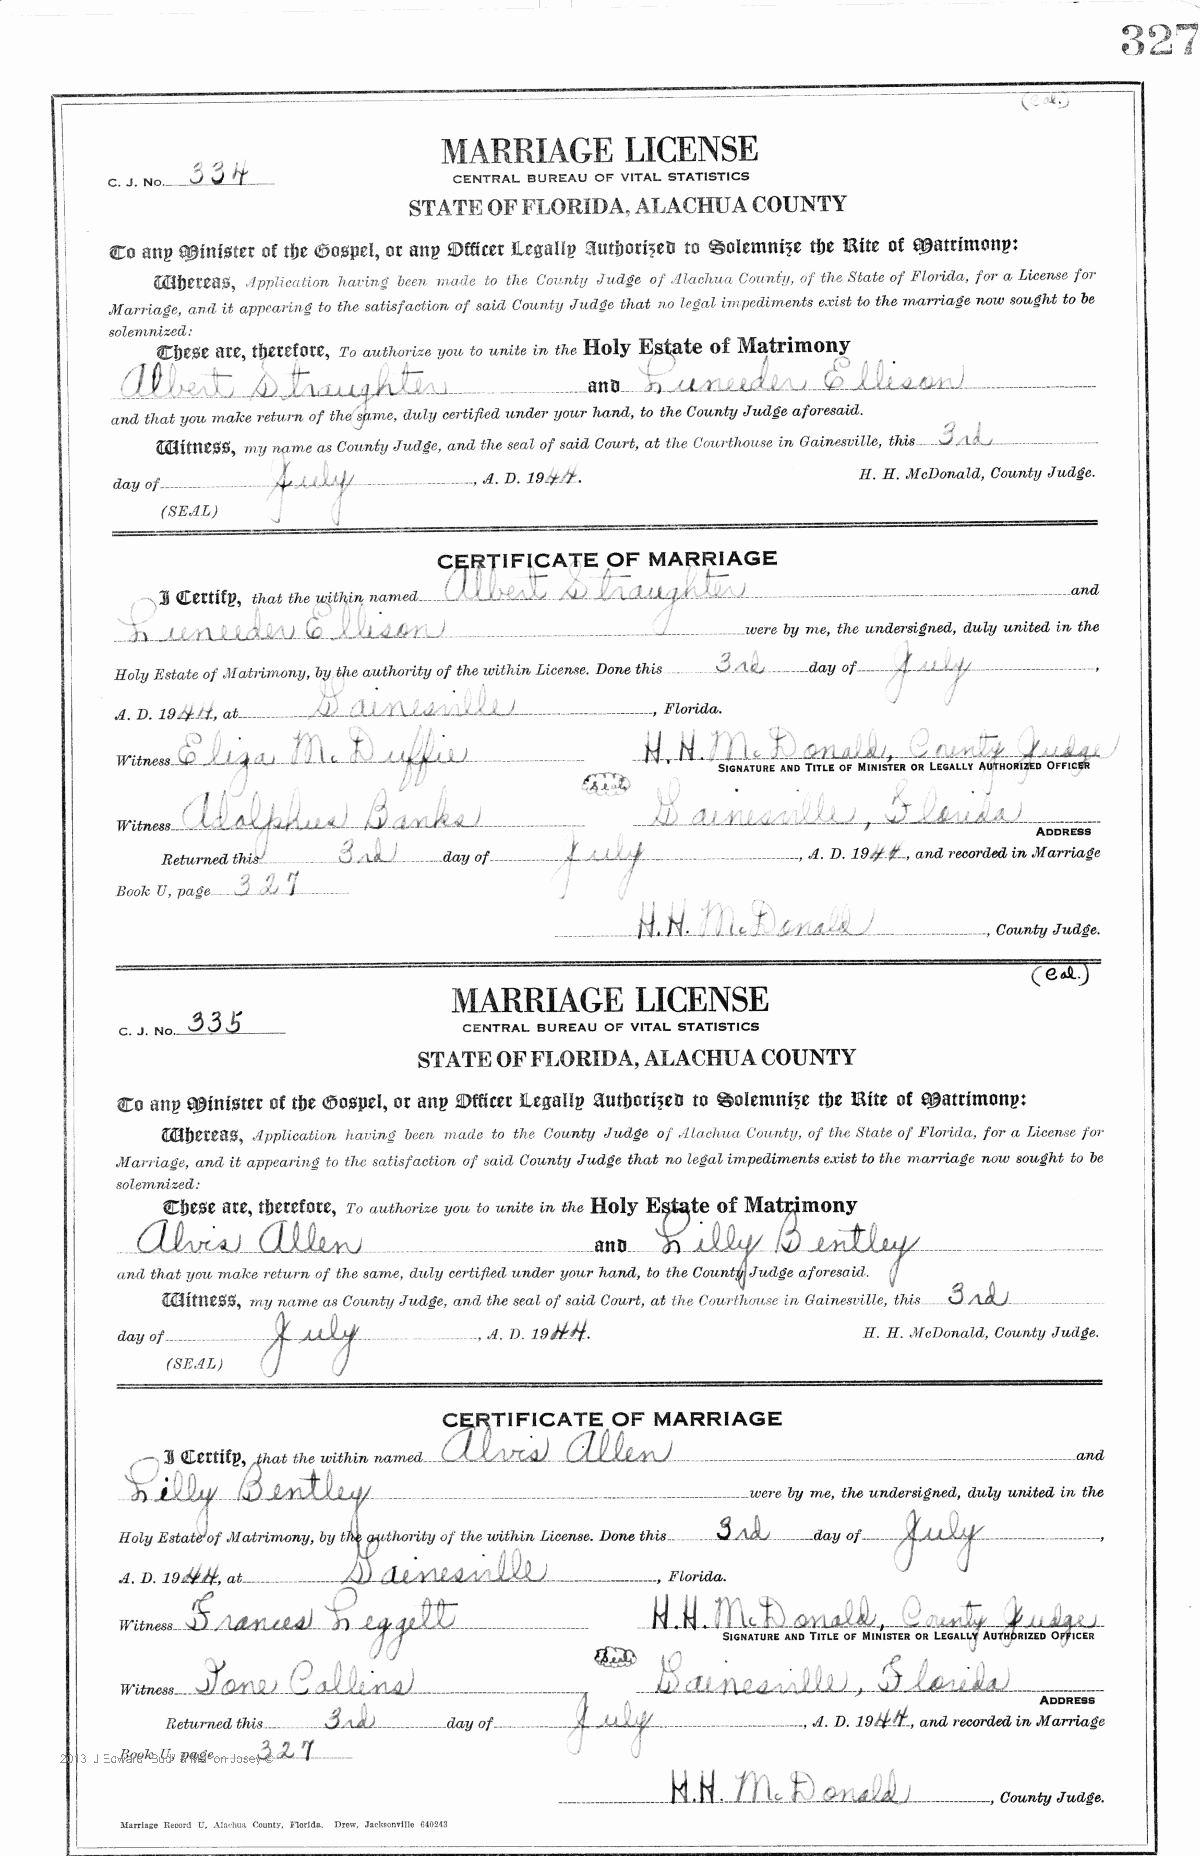 327
(Col.)
MARRIAGE LICENSE
C. J. No. 334
CENTRAL BUREAU OF VITAL STATISTICS
STATE OF FLORIDA, ALACHUA COUNTY
To any Minister of the Gospel, or any Officer Legally Authorized to Solemnize the Rite of Matrimony:
Whereas, Application having been made to the County Judge of Alachua County, of the State of Florida, for a License for
Marriage, and it appearing to the satisfaction of said County Judge that no legal impediments exist to the marriage now sought to be
solemnized:
These are, therefore, To authorize you to unite in the Holy Estate of Matrimony
Albert Straughter and Luneeder Ellison
and that you make return of the same, duly certified under your hand, to the County Judge aforesaid.
Witness, my name as County Judge, and the seal of said Court, at the Courthouse in Gainesville, this 3rd
day of July, A. D. 1944. H. H. McDonald, County Judge.
(SEAL)
CERTIFICATE OF MARRIAGE
I Certify, that the within named Albert Straughter and
Luneeder Ellison were by me, the undersigned, duly united in the
Holy Estate of Matrimony, by the authority of the within License. Done this 3rd day of July,
A. D. 1944, at Gainesville, Florida.
Witness Eliza McDuffie H. H. McDonald, County Judge
SIGNATURE AND TITLE OF MINISTER OR LEGALLY AUTHORIZED OFFICER
(Seal)
Witness Adolphus Banks Gainesville, Florida
ADDRESS
Returned this 3rd day of July, A. D. 1944, and recorded in Marriage
Book U, page 327
H. H. McDonald, County Judge.
(Col.)
MARRIAGE LICENSE
C. J. No. 335
CENTRAL BUREAU OF VITAL STATISTICS
STATE OF FLORIDA, ALACHUA COUNTY
To any Minister of the Gospel, or any Officer Legally Authorized to Solemnize the Rite of Matrimony:
Whereas, Application having been made to the County Judge of Alachua County, of the State of Florida, for a License for
Marriage, and it appearing to the satisfaction of said County Judge that no legal impediments exist to the marriage now sought to be
solemnized:
These are, therefore, To authorize you to unite in the Holy Estate of Matrimony
Alvis Allen and Lilly Bentley
and that you make return of the same, duly certified under your hand, to the County Judge aforesaid.
Witness, my name as County Judge, and the seal of said Court, at the Courthouse in Gainesville, this 3rd
day of July, A. D. 1944. H. H. McDonald, County Judge.
(SEAL)
CERTIFICATE OF MARRIAGE
I Certify, that the within named Alvis Allen and
Lilly Bentley were by me, the undersigned, duly united in the
Holy Estate of Matrimony, by the authority of the within License. Done this 3rd day of July,
A. D. 1944, at Gainesville, Florida.
Witness Frances Leggett H. H. McDonald, County Judge
SIGNATURE AND TITLE OF MINISTER OR LEGALLY AUTHORIZED OFFICER
(Seal)
Witness Ione Collins Gainesville, Florida
ADDRESS
Returned this 3rd day of July, A. D. 1944, and recorded in Marriage
Book U, page 327
2013 J Edward
H. H. McDonald, County Judge.
Marriage Record U, Alachua County, Florida. Drew, Jacksonville 640243